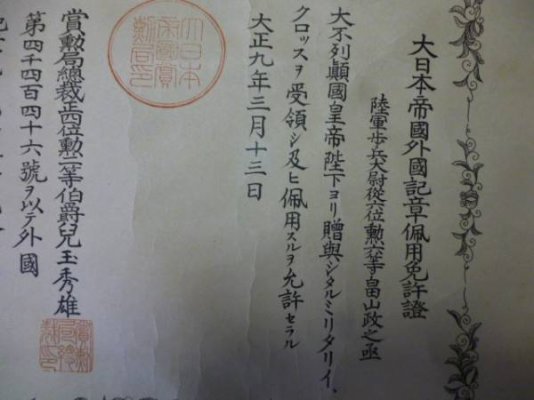 大日本帝國外國記章佩用免許證
陸軍歩兵大尉從六位勲六等畠山政之丞
大不列顛國皇帝陛下ヨリ贈與シタルミリタリイ、
クロッスヲ受領シ及ヒ佩用スルヲ允許セラル
大正九年三月十三日
大日本帝國賞勲局印
賞勲局總裁正四位勲二等伯爵兒玉秀雄
第四千四百四十六號ヲ以テ外國